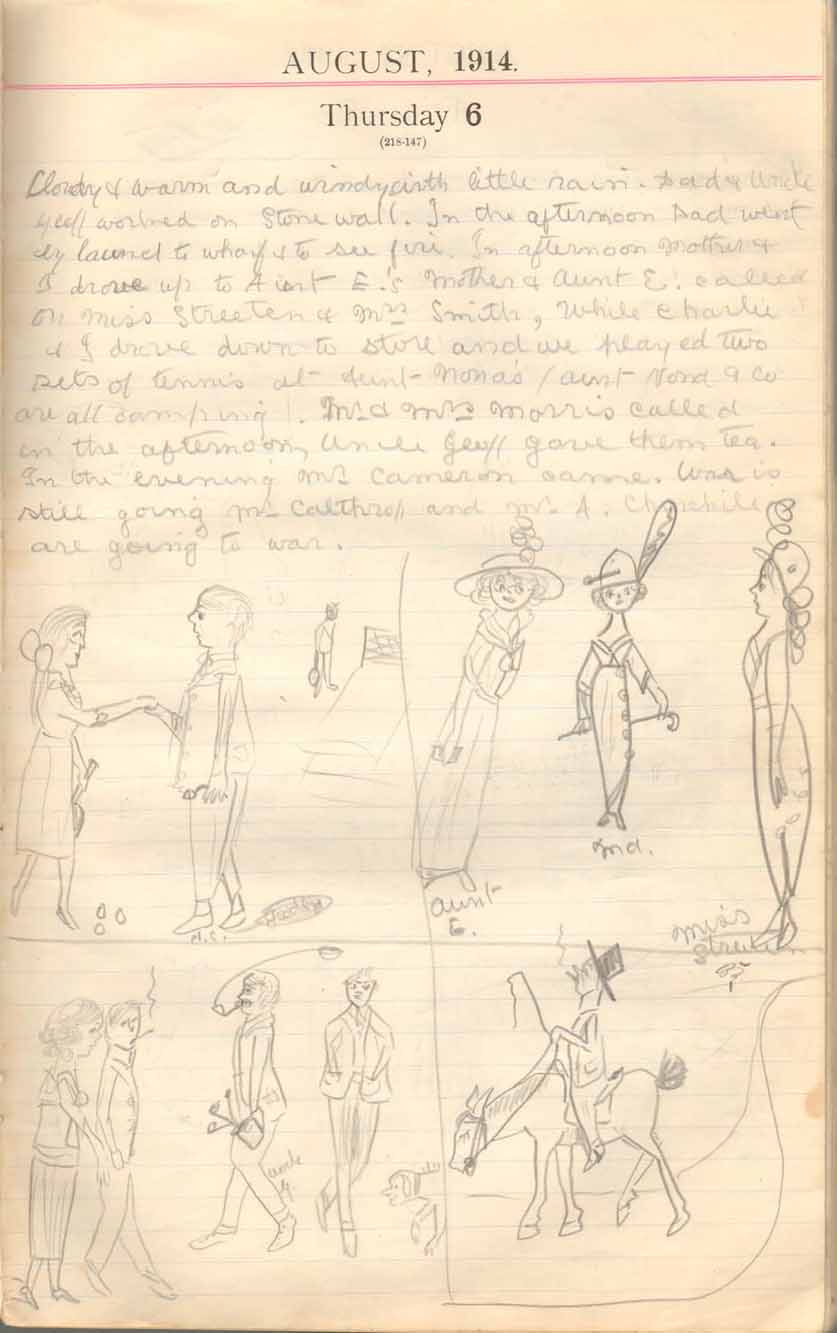 AUGUST, 1914.
Thursday 6
(218-147)
Cloudy & warm and windy with little rain. Dad & Uncle
Geoff worked on Stone wall. In the afternoon Dad went
by launch to wharf & to see fire. In afternoon Mother &
I drove up to Aunt E.'s Mother & Aunt E. called
on Miss Streeten & Mrs Smith, While Charlie
& I drove down to store and we played two
sets of tennis at Aunt Nona's (aunt Nona & Co
are all camping). Mr & Mrs Morris called
in the afternoon, Uncle Geoff gave them tea.
In the evening Mr Cameron came. War is
still going Mr Calthrop and Mr A. Churchill
are going to war.
Aunt
E.
Md.
Miss
Streeten
Uncle
G.